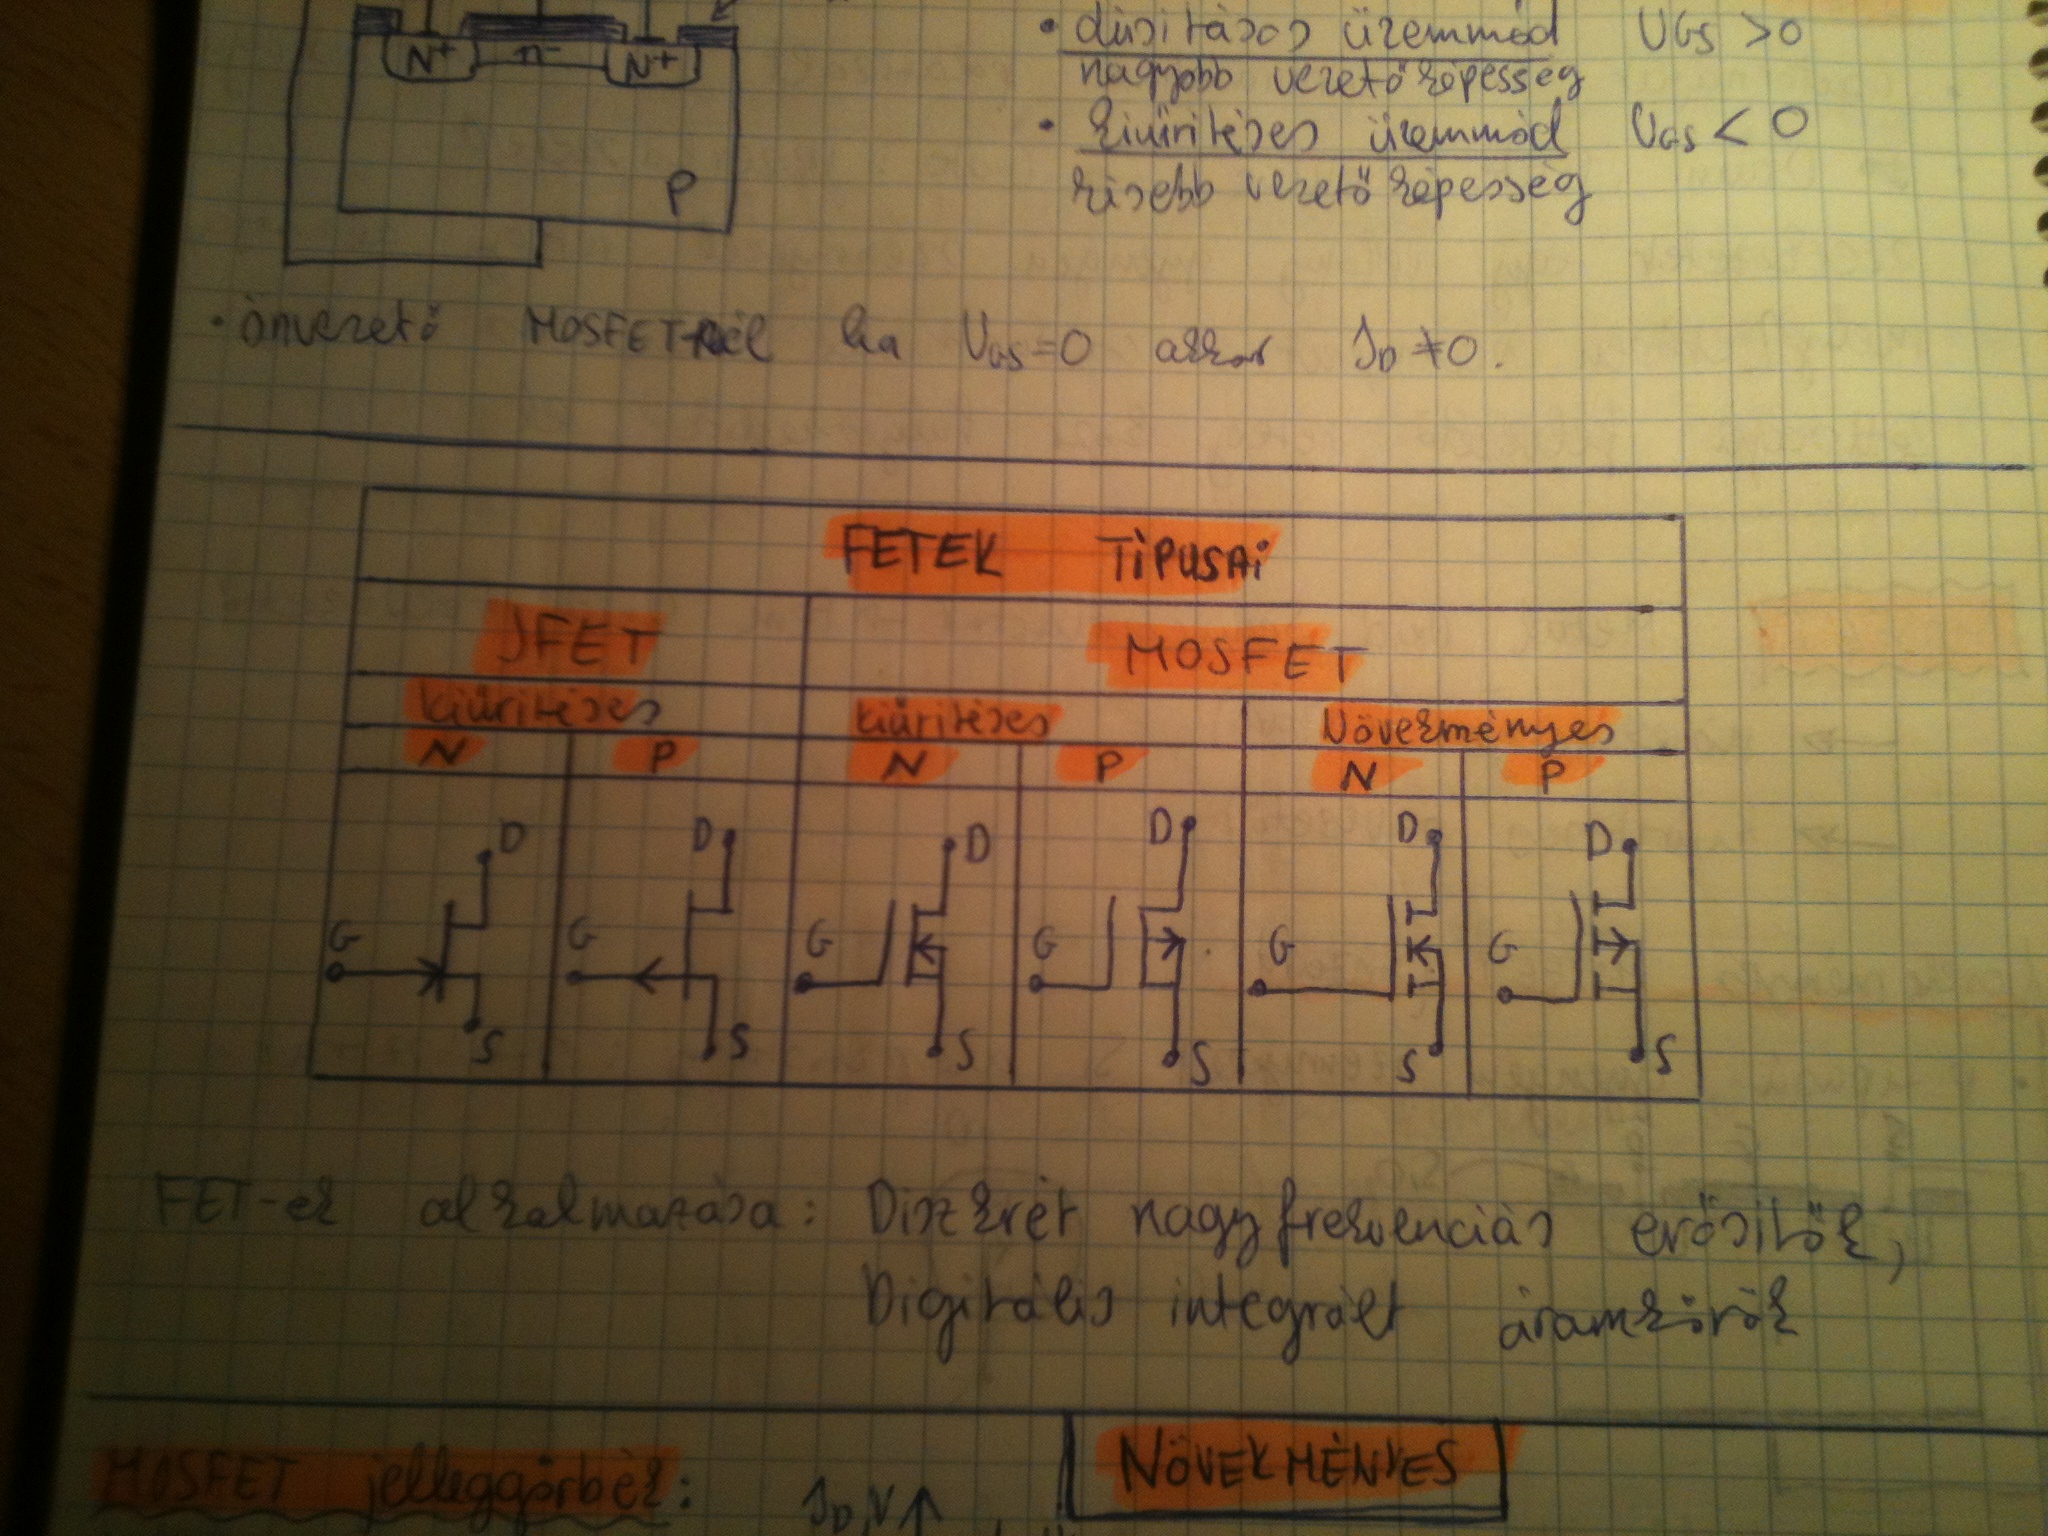 • dúsításos üzemmód UGS >0
nagyobb vezető képesség
• kiürítéses üzemmód UGS < 0
kisebb vezető képesség
N+ n- N+
P
• önvezető MOSFET-nél ha UGS=0 akkor ID ≠0.
FETEK TÍPUSAi
JFET MOSFET
kiürítéses kiürítéses Növekményes
N P N P N P
G D S G D S G D S G D S G D S G D S
FET-ek alkalmazása: Diszkrét nagyfrekvenciás erősítők,
Digitális integrált áramkörök
NÖVEKMÉNYES
MOSFET jelleggörbék:
ID,N